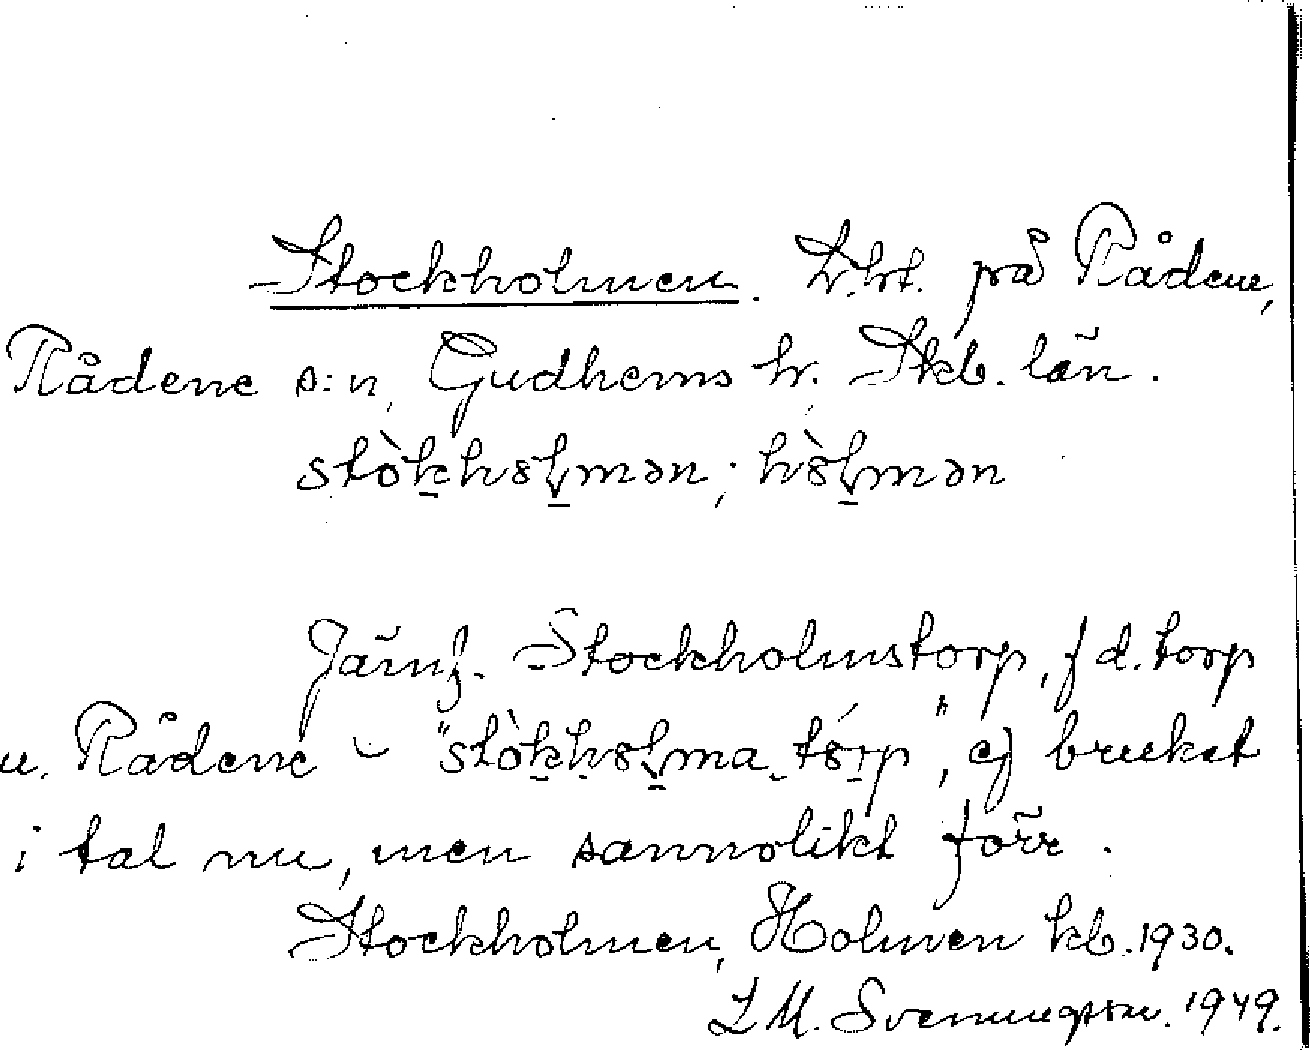 Stockholmen. L.ht. på Rådene,
Rådene s:n, Gudhems hr. Skb. län.
stòkholmən; hòlmən
Jämf. Stockholmstorp, f d. torp
u. Rådene – "stòkholma tórp", ej brukat
i tal nu, men sannolikt förr.
Stockholmen, Holmen kb. 1930.
L M. Svenungsson. 1949.